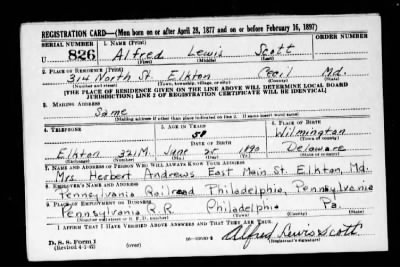 REGISTRATION CARD—(Men born on or after April 28, 1877 and on or before February 16, 1897)
SERIAL NUMBER 1. NAME (Print) ORDER NUMBER
U 826 Alfred Lewis Scott
(First) (Middle) (Last)
2. PLACE OF RESIDENCE (Print)
314 North St. Elkton Cecil Md.
(Number and street) (Town, township, village, or city) (County) (State)
[THE PLACE OF RESIDENCE GIVEN ON THE LINE ABOVE WILL DETERMINE LOCAL BOARD
JURISDICTION; LINE 2 OF REGISTRATION CERTIFICATE WILL BE IDENTICAL]
3. MAILING ADDRESS
Same
[Mailing address if other than place indicated on line 2. If same insert word same]
4. TELEPHONE 5. AGE IN YEARS 6. PLACE OF BIRTH
Wilmington
DATE OF BIRTH (Town or county)
Elkton 321M. June 25 1890 Delaware
(Exchange) (Number) (Mo.) (Day) (Yr.) (State or country)
7. NAME AND ADDRESS OF PERSON WHO WILL ALWAYS KNOW YOUR ADDRESS
Herbert Andrews East Main St. Elkton, Md.
8. EMPLOYER'S NAME AND ADDRESS
Pennsylvania Railroad Philadelphia, Pennsylvania
9. PLACE OF EMPLOYMENT OR BUSINESS
Pennsylvania R.R. Philadelphia Pa.
(Number and street or R. F. D. number) (Town) (County) (State)
I AFFIRM THAT I HAVE VERIFIED ABOVE ANSWERS AND THAT THEY ARE TRUE.
D. S. S. Form 1 Alfred Lewis Scott
(Revised 4-1-42) (over) (Registrant's signature)